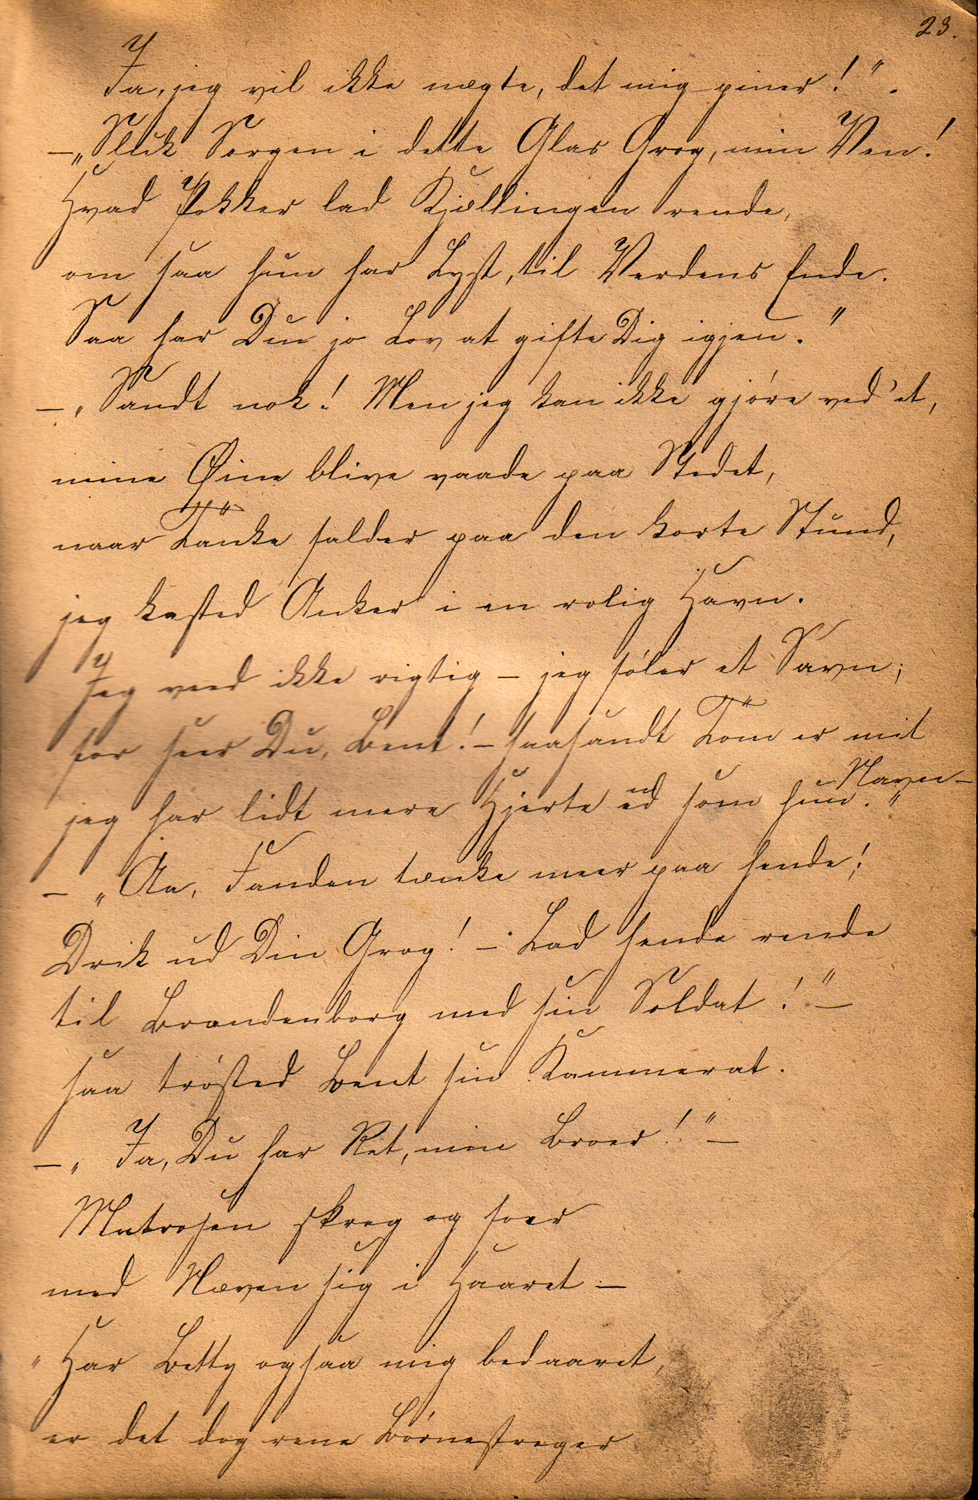 23.
Ja, jeg vil ikke nægte, det mig piner!".
— „Sluk Sorgen i dette Glas Grog, min Ven!
Hvad Pokker lad Kjællingen rende,
om saa hun har Lyst, til Verdens Ende.
Saa har Du jo Lov at gifte Dig igjen."
— „Sandt nok! Men jeg kan ikke gjøre ved'et,
mine Øine blive vaade paa Stedet,
naar Tanke falder paa den korte Stund,
jeg kasted Anker i en rolig Havn.
Jeg veed ikke rigtig — jeg føler et Savn;
for seer Du, Bent! — saasandt Tom er mit
Navn —
jeg har lidt mere Hjerte end som hun."
— „Aa, Fanden tænke meer paa hende!
Drik ud Din Grog! — Lad hende rende
til Brandenborg med sin Soldat!" —
saa trøsted Bent sin Kammerat.
— „Ja, Du har Ret, min Broer!" —
Matrosen skreg og foer
med Næven sig i Haaret —
„Har Betty ogsaa mig bedaaret,
er det dog rene Børnestreger